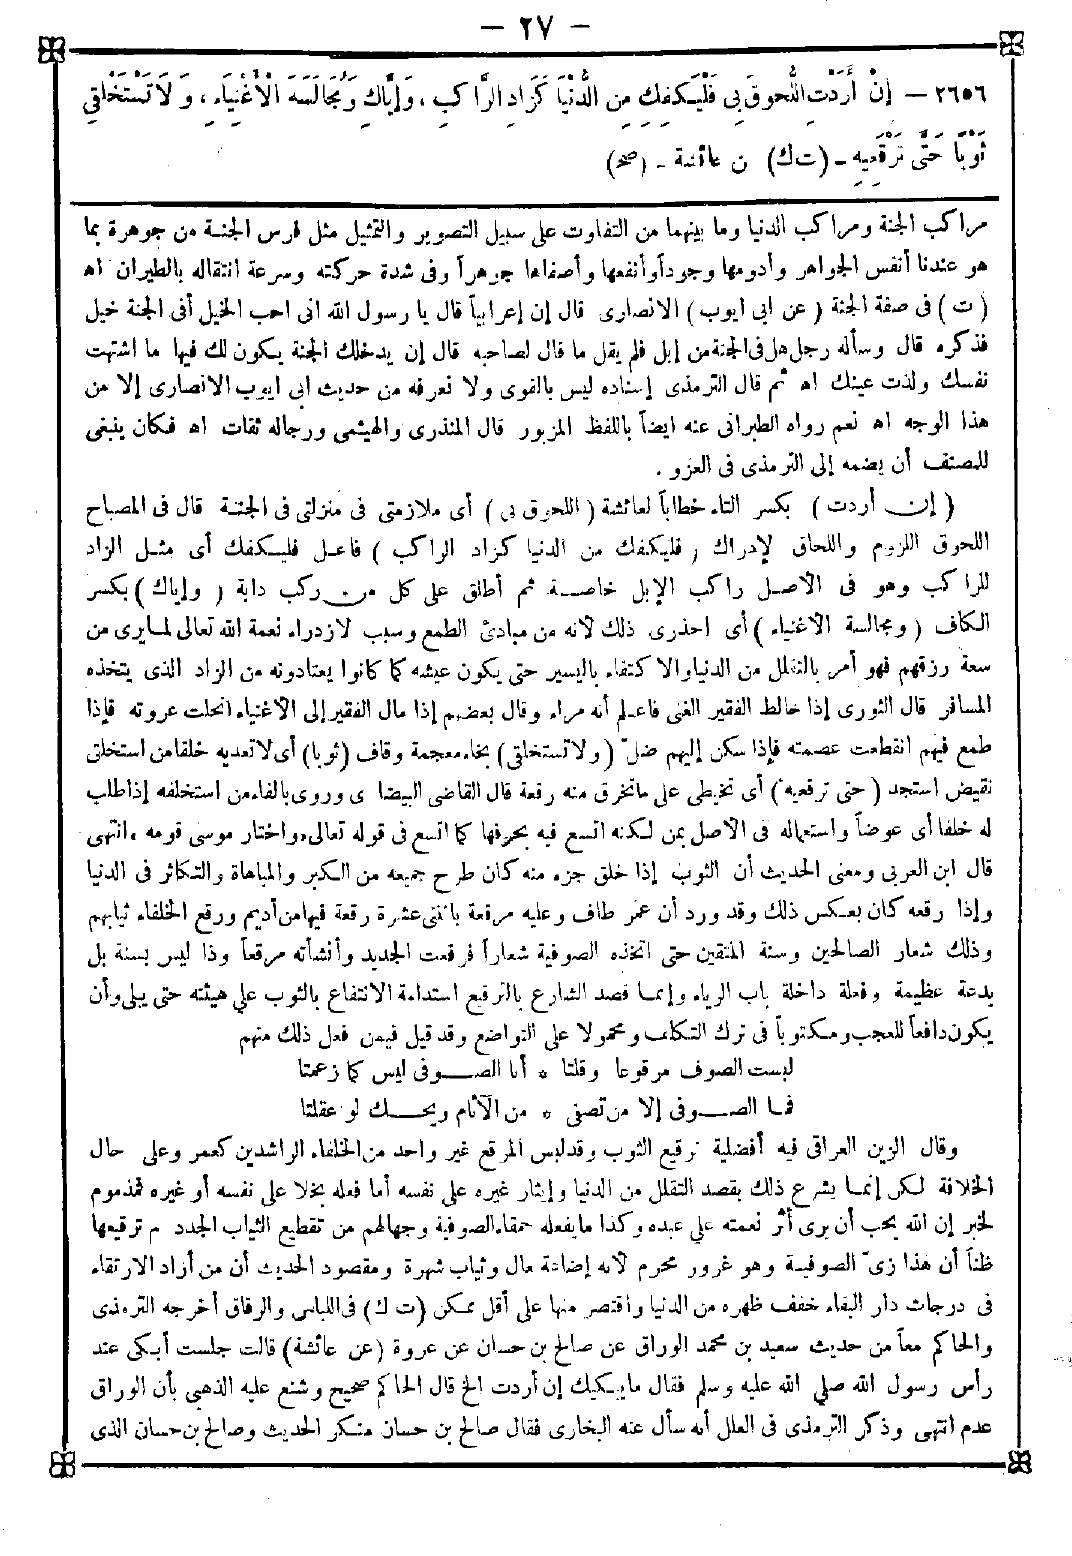 - ٢٧ -
٢٦٥٦ - إِنْ أَرَدْتِ اللُّحوقَ بِي فَلْيَكفِكِ مِنَ الدُّنْيَا كَزَادِ الرَّاكِبِ، وَإِيَّاكِ وَمُجَالَسَةَ الْأَغْنِيَاءِ، وَلَا تَسْتَخْلِقِي
ثَوْبًا حَتَّى تَرْقَعِيهِ - (ت ك) ن عائشة - (صح)
مراكب الجنة ومراكب الدنيا وما بينهما من التفاوت على سبيل التصوير والتمثيل مثل فرس الجنة من جوهرة بما
هو عندنا أنفس الجواهر وأدومها وجوداً وأنفعها وأصفاها جوهراً وفى شدة حركته وسرعة انتقاله بالطيران اه
(ت) فى صفة الجنة (عن ابى ايوب) الانصارى قال إن إعرابياً قال يا رسول الله انى احب الخيل أفى الجنة خيل
فذكره قال وسأله رجل هل فى الجنة من إبل فلم يقل ما قال لصاحبه قال إن يدخلك الجنة يكون لك فيها ما اشتهت
نفسك ولذت عينك اه ثم قال الترمذى إسناده ليس بالقوى ولا نعرفه من حديث ابى ايوب الانصارى إلا من
هذا الوجه اه نعم رواه الطبرانى عنه ايضاً باللفظ المزبور قال المنذرى والهيثمى ورجاله ثقات اه فكان ينبغى
للمصنف أن يضمه إلى الترمذى فى العزو .
(إن أردت) بكسر التاء خطاباً لعائشة (اللحوق بى) أى ملازمتى فى منزلتى فى الجنة قال فى المصباح
اللحوق اللزوم واللحاق لإدراك (فليكفك من الدنيا كزاد الراكب) فاعل فليكفك أى مثل الزاد
للراكب وهو فى الأصل راكب الإبل خاصة ثم أطلق على كل من ركب دابة (وإياك) بكسر
الكاف (ومجالسة الأغنياء) أى احذرى ذلك لأنه من مبادئ الطمع وسبب لازدراء نعمة الله تعالى لما يرى من
سعة رزقهم فهو أمر بالتقلل من الدنيا والاكتفاء باليسير حتى يكون عيشه كما كانوا يعتادونه من الزاد الذى يتخذه
المسافر قال الثورى إذا خالط الفقير الغنى فاعلم أنه مراء وقال بعضهم إذا مال الفقير إلى الأغنياء انحلت عروته فإذا
طمع فيهم انقطعت عصمته فإذا سكن إليهم ضلّ (ولا تستخلقى) بخاء معجمة وقاف (ثوبا) أى لا تعديه خلقا من استخلق
نقيض استجد (حتى ترقعيه) أى تخيطى على ماتخرق منه رقعة قال القاضى البيضاوى وروى بالفاء من استخلفه إذا طلب
له خلفا أى عوضاً واستعماله فى الأصل بمن لكنه اتسع فيه بحرفها كما اتسع فى قوله تعالى «واختار موسى قومه» انتهى
قال ابن العربى ومعنى الحديث أن الثوب إذا خلق جزء منه كان طرح جميعه من الكبر والمباهاة والتكاثر فى الدنيا
وإذا رقعه كان بعكس ذلك وقد ورد أن عمر طاف وعليه مرقعة باثنتى عشرة رقعة فيها من أديم ورقع الخلفاء ثيابهم
وذلك شعار الصالحين وسنة المتقين حتى اتخذه الصوفية شعاراً فرقعت الجديد وأنشأته مرقعاً وذا ليس بسنة بل
بدعة عظيمة وفعلة داخلة باب الرياء وإنما قصد الشارع بالترقيع استدامة الانتفاع بالثوب على هيئته حتى يبلى وأن
يكون دافعاً للعجب ومكتوباً فى ترك التكلف ومحمولا على التواضع وقد قيل فيمن فعل ذلك منهم
لبست الصوف مرقوعا وقلتا * أنا الصوفى ليس كما زعمتا
فما الصوفى إلا من تصفى * من الآثام ويحك لو عقلتا
وقال الزين العراقى فيه أفضلية ترقيع الثوب وقد لبس المرقع غير واحد من الخلفاء الراشدين كعمر وعلى حال
الخلافة لكن إنما يشرع ذلك بقصد التقلل من الدنيا وإيثار غيره على نفسه أما فعله بخلا على نفسه أو غيره فمذموم
لخبر إن الله يحب أن يرى أثر نعمته على عبده وكذا ما يفعله حمقاء الصوفية وجهالهم من تقطيع الثياب الجدد م ترقيعها
ظناً أن هذا زىّ الصوفية وهو غرور محرم لأنه إضاعة مال وثياب شهرة ومقصود الحديث أن من أراد الارتقاء
فى درجات دار البقاء خفف ظهره من الدنيا واقتصر منها على أقل ممكن (ت ك) فى اللباس والرقاق أخرجه الترمذى
والحاكم معاً من حديث سعيد بن محمد الوراق عن صالح بن حسان عن عروة (عن عائشة) قالت جلست أبكى عند
رأس رسول الله صلى الله عليه وسلم فقال ما يبكيك إن أردت الخ قال الحاكم صحيح وشنع عليه الذهبى بأن الوراق
عدم انتهى وذكر الترمذى فى العلل أنه سأل عنه البخارى فقال صالح بن حسان منكر الحديث وصالح بن حسان الذى